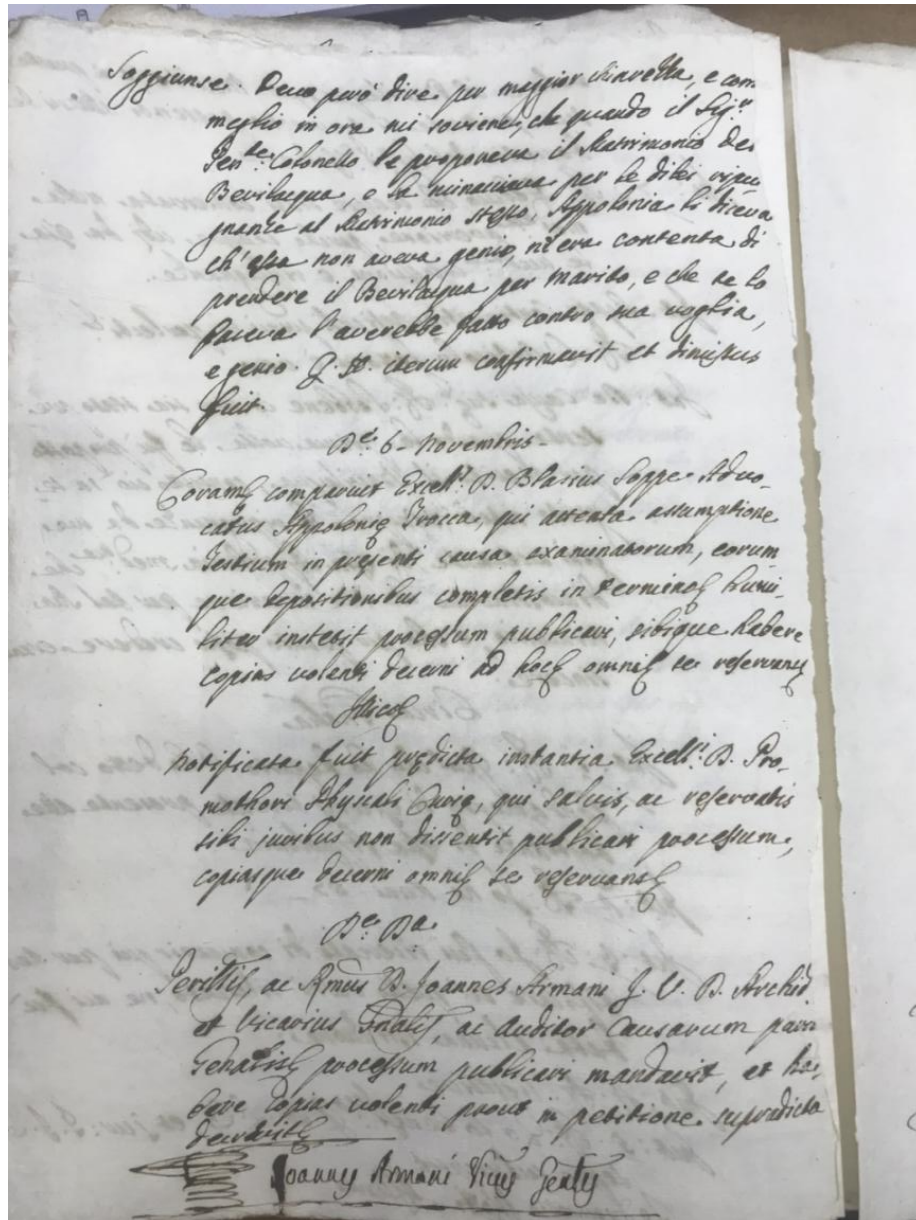 Soggiunse. Devo però dire per maggior chiarezza, e com
meglio in ora mi soviene, che quando il Sig.r
Ten.te Colonello le proponeva il Matrimonio del
Bevilacqua, e la minacciava per le dilei ripu
gnanze al Matrimonio stesso, Appolonia li diceva
ch' essa non aveva genio, n'era contenta di
prendere il Bevilacqua per marito, e che se lo
faceva l'averebbe fatto contro sua voglia,
e genio. J. iterum confirmavit et dimissus
fuit.
D.e 6. Novembris
Coram comparuit Excell. D. Blasius Soppe Advo-
catus Appolonię Trocca, qui attenta assumptione
Testium in pręsenti causa examinatorum, eorum
que depositionibus completis in termino humi-
liter institit processum publicari, sibique habere
copias volenti decerni ad hoc omni se reservans
Illico
Notificata fuit prędicta instantia Excell. D. Pro-
mothori Physcali Curię, qui salvis, ac reservatis
sibi juribus non dissentit publicari processum,
copiasque decerni omni se reservans
D.e D.a
ac Rmus D. Joannes Armani J. V. D. Archid.
et Vicarius Gnalis, ac Auditor Causarum
processum publicari mandavit, et ha-
bere copias volenti prout in petitione supradicta
decrevit
Joannes Armani Vicus Genlis